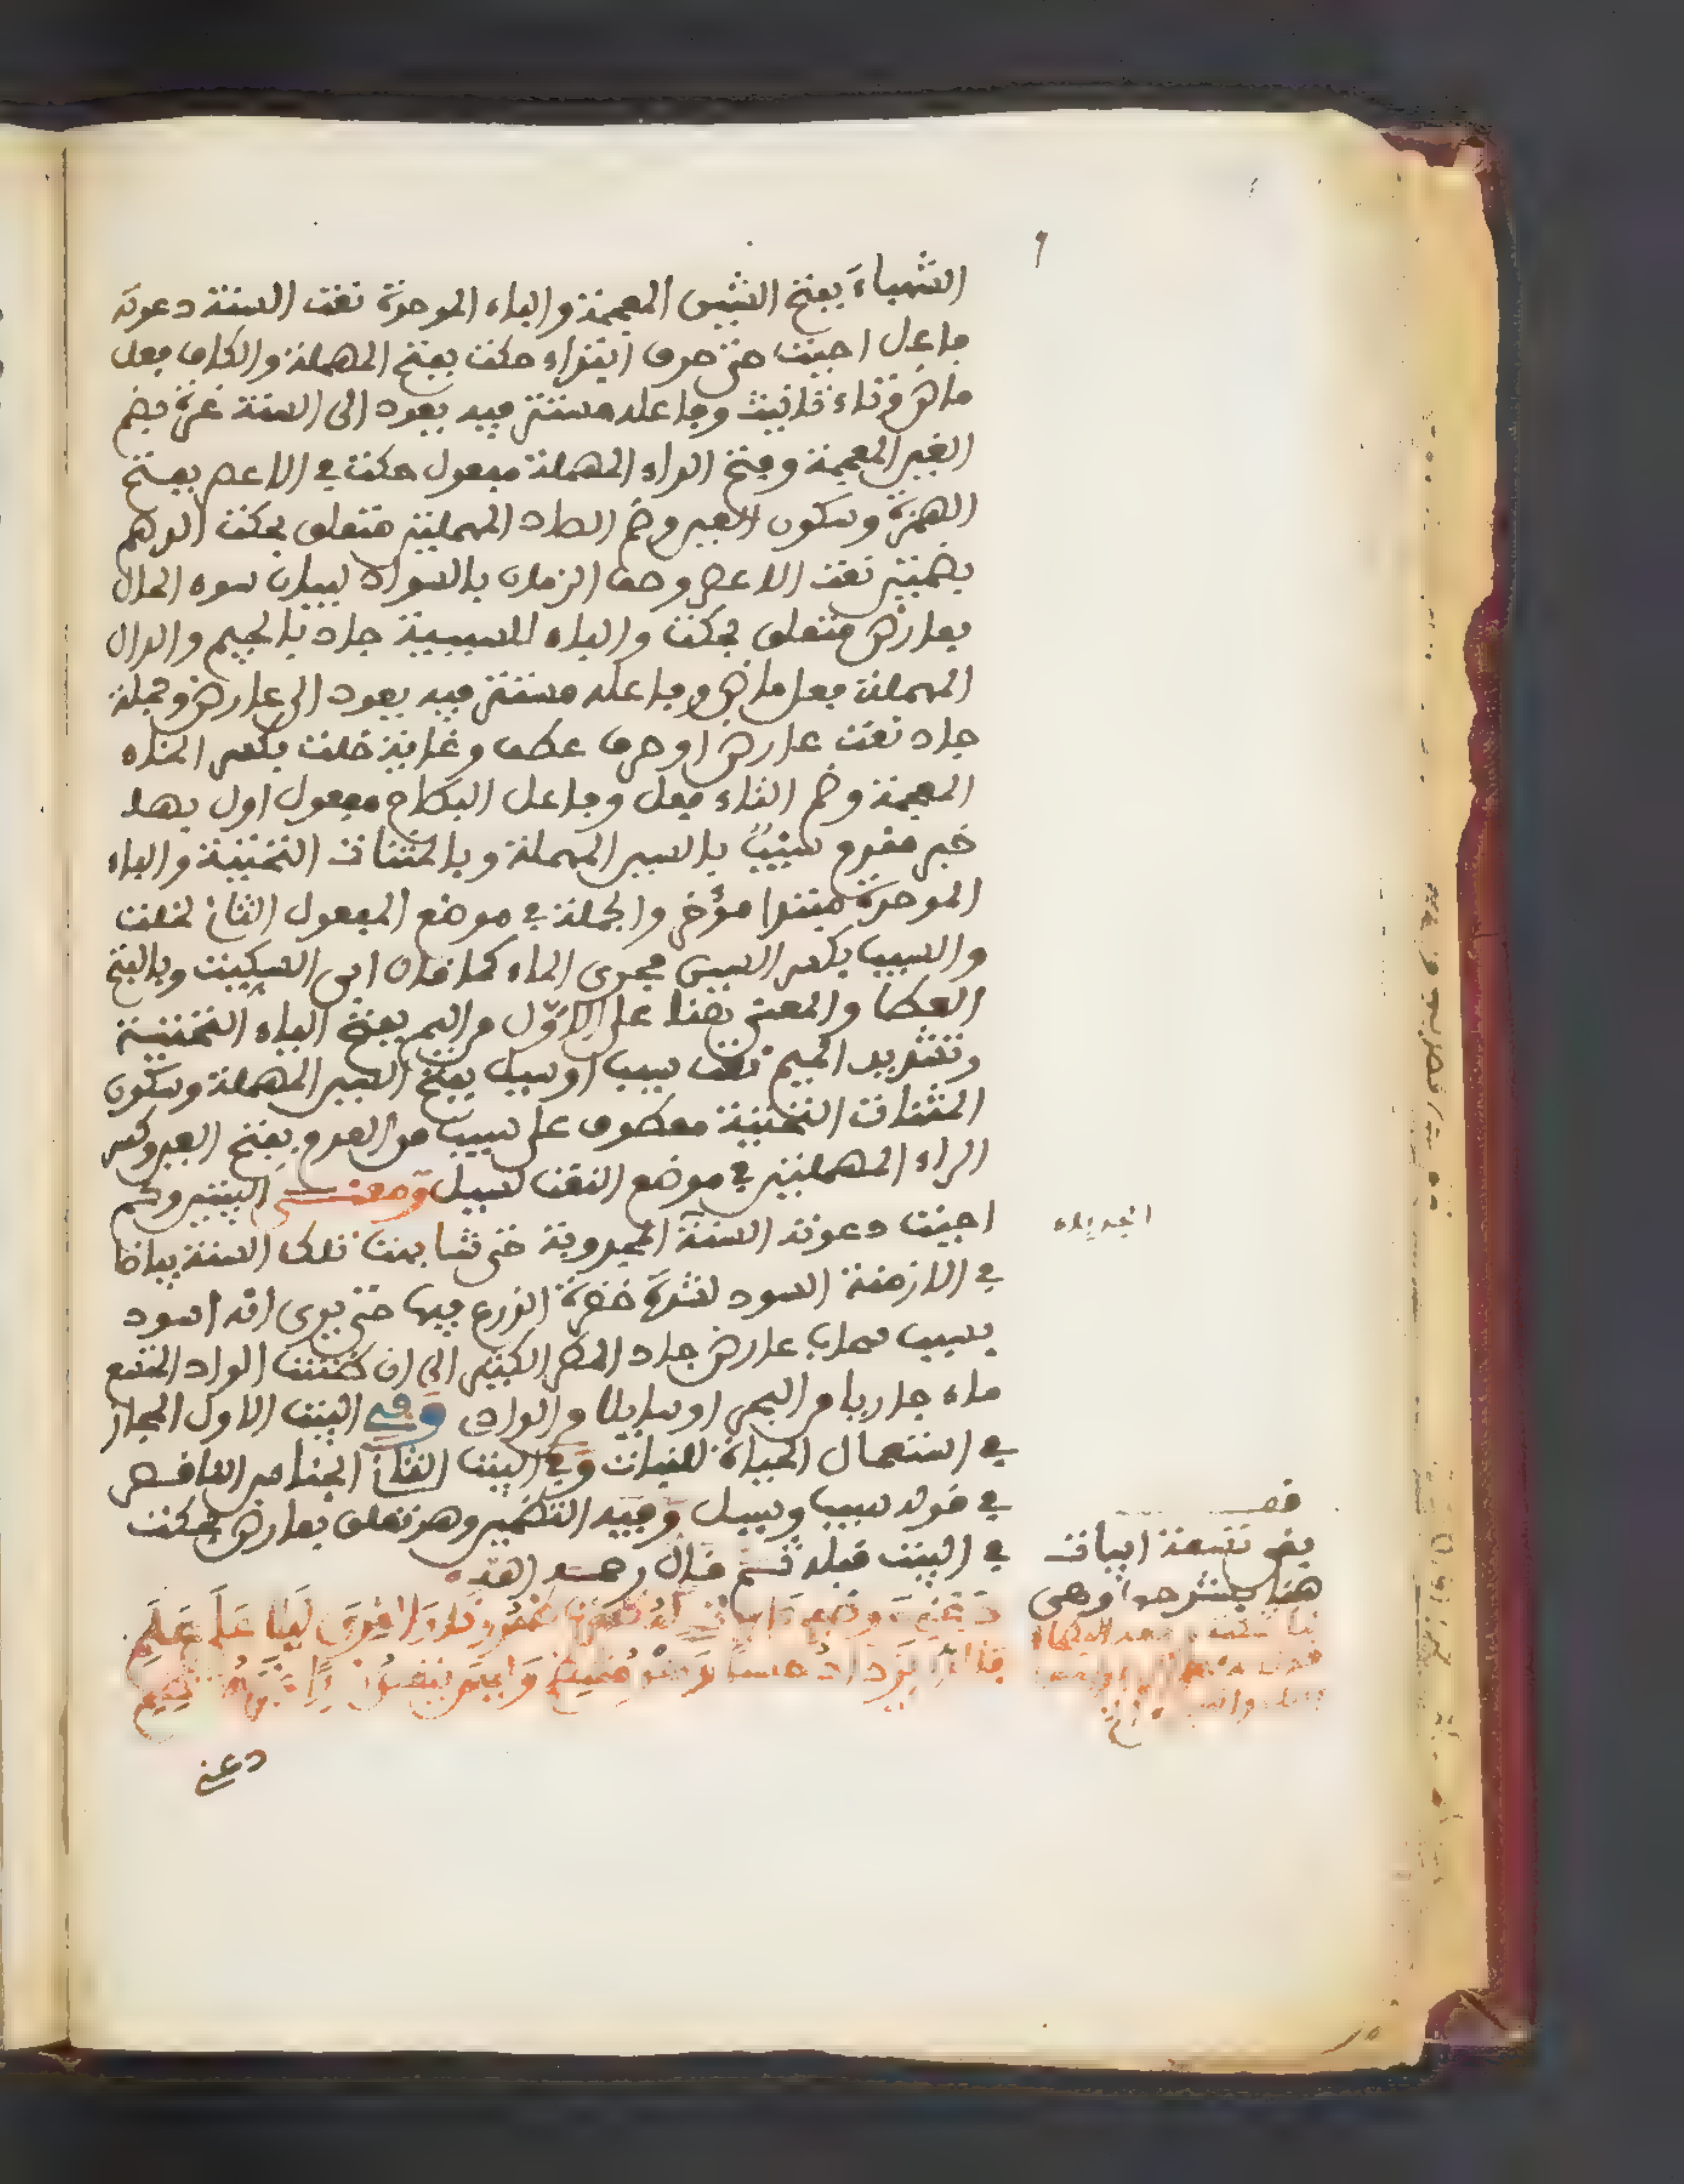 الشهباءَ بفتح الشين المعجمة والباء الموحدة نعت السنة دعوته
فاعل احيت حتى حرف ابتداء حكت بفتح المهملة والكاف فعل
ماض وتاء تانيث وفاعله مستتر فيه يعود الى السنة غرة بضم
الغين المعجمة وفتح الراء المهملة مفعول حكت في الاعصر بفتح
الهمزة وسكون العين وضم الصاد المهملتين متعلق بحكت الدهم
بضمتين نعت الاعصر وصف الزمان بالسواد لبيان سوء الحال
بعارض متعلق بحكت والباء للسببية جاد بالجيم والدال
المهملة فعل ماض وفاعله مستتر فيه يعود الى عارض وجملة
جاد نعت عارض او حرف عطف وغاية خلت بكسر الخاء
المعجمة وضم التاء فعل وفاعل البطاح مفعول اول بها
خبر مقدم سيبٌ بالسين المهملة وبالمثنات التحتية والباء
الموحدة مبتدا مؤخر والجملة في موضع المفعول الثاني لخلت
والسيب بكسر السين مجرى الماء كما قال ابن السكيت وبالفتح
العطا والمعنى هنا على الاوّل من اليم بفتح الياء التحتية
وتشديد الميم نعت سيب او سيل بفتح السين المهملة وسكون
المثنات التحتية معطوف على سيب من العرم بفتح العين وكسر
الراء المهملتين في موضع النعت لسيل ومعنى البيتين وكم
احيت دعوته السنة المجدوبة حتى شابهت تلك السنة بياضا
الجديدة
في الازمنة السود لشدة خضرة الزرع فيها حتى يرى انه اسود
بسبب سحاب عارض جاد المطر الكثير الى ان ظننت الواد المتسع
ماء جاريا من اليم او سايلا من الوادى وفي البيت الاول المجاز
في استعمال الحياة للنبات وفي البيت الثاني الجناس الناقص
في قوله سيب وسيل وفيه التضمين وهو تعلق بعارض بحكت
في البيت قبله ثم قال رحمه الله
بقي تسعة ابيات
هنا بشرحها وهي
دَعْنِي وَوَصْفِيَ اياتٍ لَهُ ظَهَرَتْ ظُهُورَ نَارِ الْقِرَى لَيْلًا عَلَى عَلَمِ
فَالدُّرُّ يَزْدَادُ حُسْنًا وَهْوَ مُنْتَظِمٌ وَلَيْسَ يَنْقُصُ قَدْرًا غَيْرَ مُنْتَظِمِ
دعني